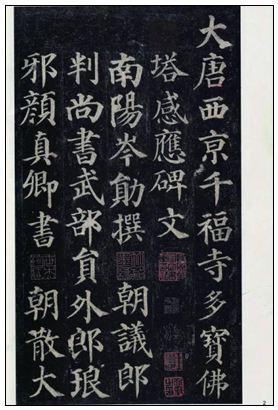 大唐西京千福寺多寶佛
塔感應碑文
南陽岑勛撰 朝議郎
判尚書武部員外郎琅
邪顏真卿書 朝散大
2